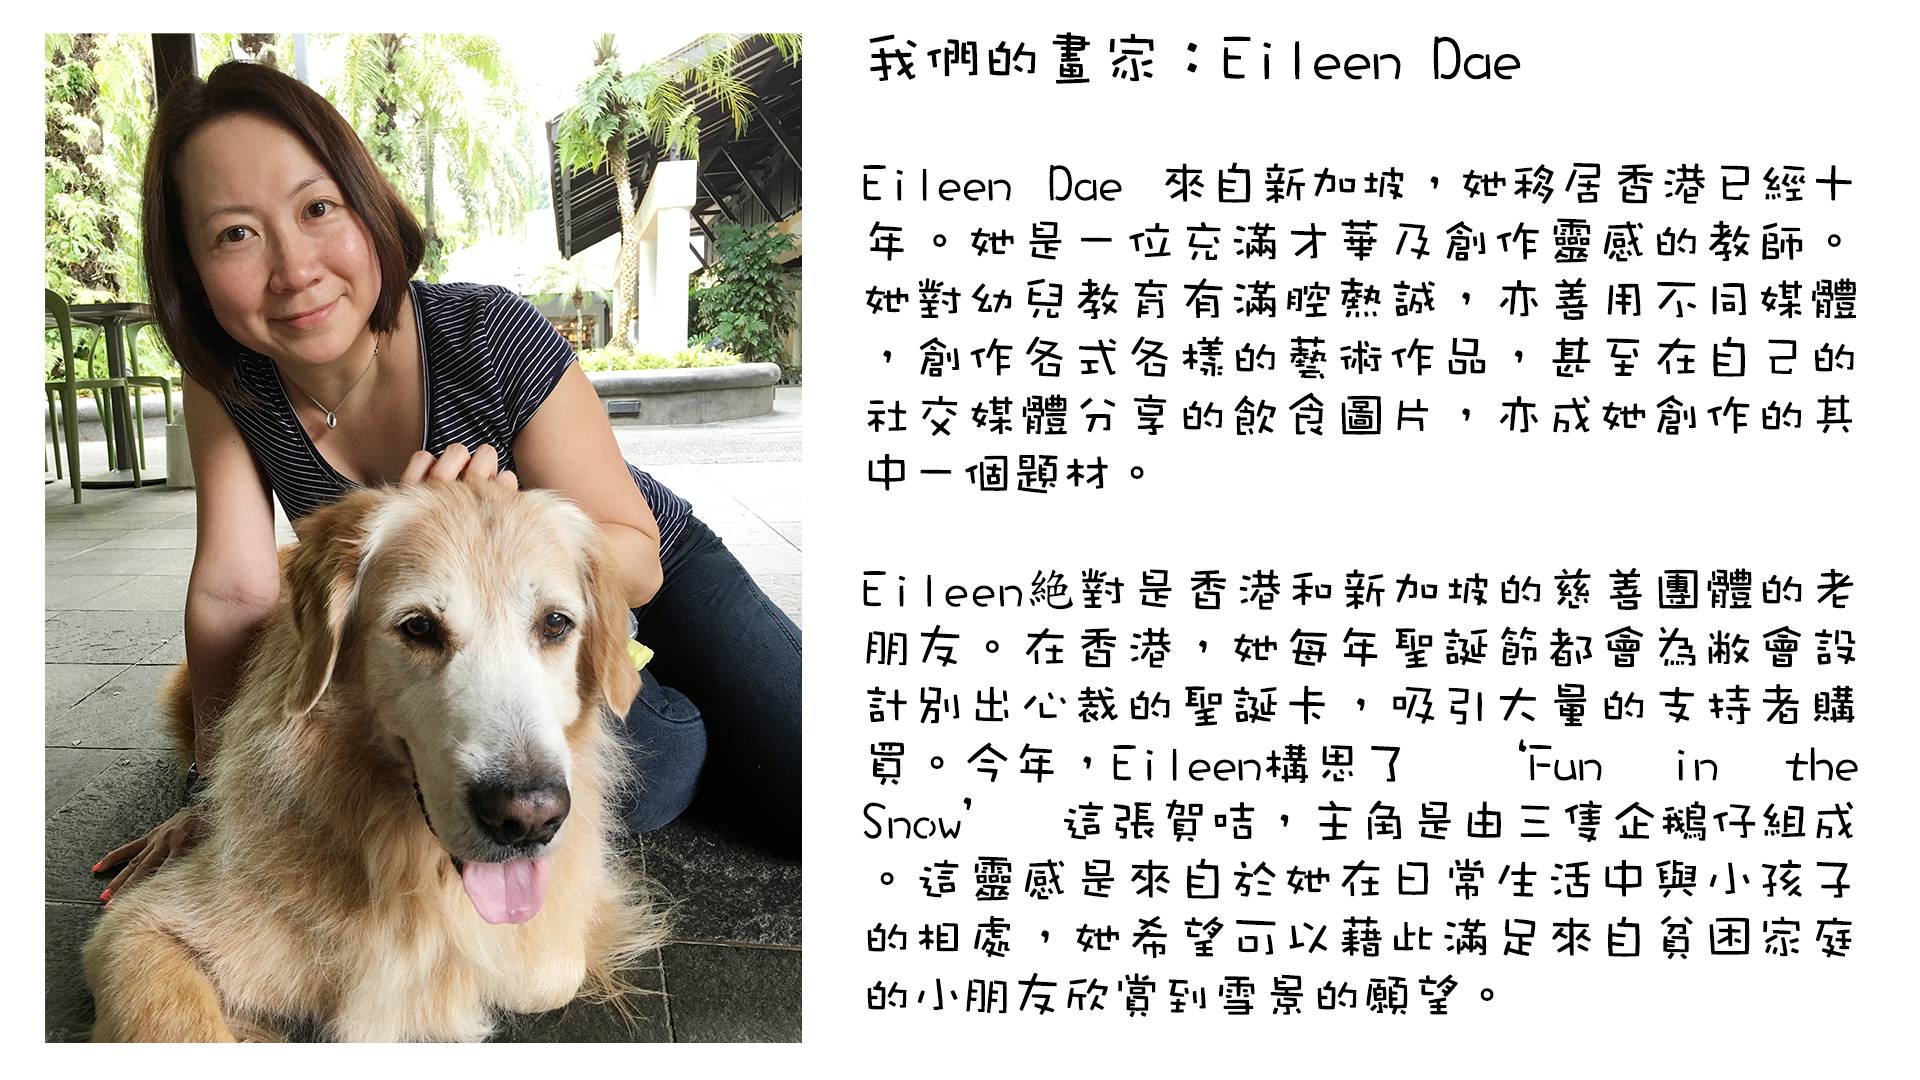 我們的畫家：Eileen Dae
Eileen Dae 來自新加坡，她移居香港已經十
年。她是一位充滿才華及創作靈感的教師。
她對幼兒教育有滿腔熱誠，亦善用不同媒體
，創作各式各樣的藝術作品，甚至在自己的
社交媒體分享的飲食圖片，亦成她創作的其
中一個題材。
Eileen絕對是香港和新加坡的慈善團體的老
朋友。在香港，她每年聖誕節都會為敝會設
計別出心裁的聖誕卡，吸引大量的支持者購
買。今年，Eileen構思了 ‘Fun in the
Snow’ 這張賀咭，主角是由三隻企鵝仔組成
。這靈感是來自於她在日常生活中與小孩子
的相處，她希望可以藉此滿足來自貧困家庭
的小朋友欣賞到雪景的願望。